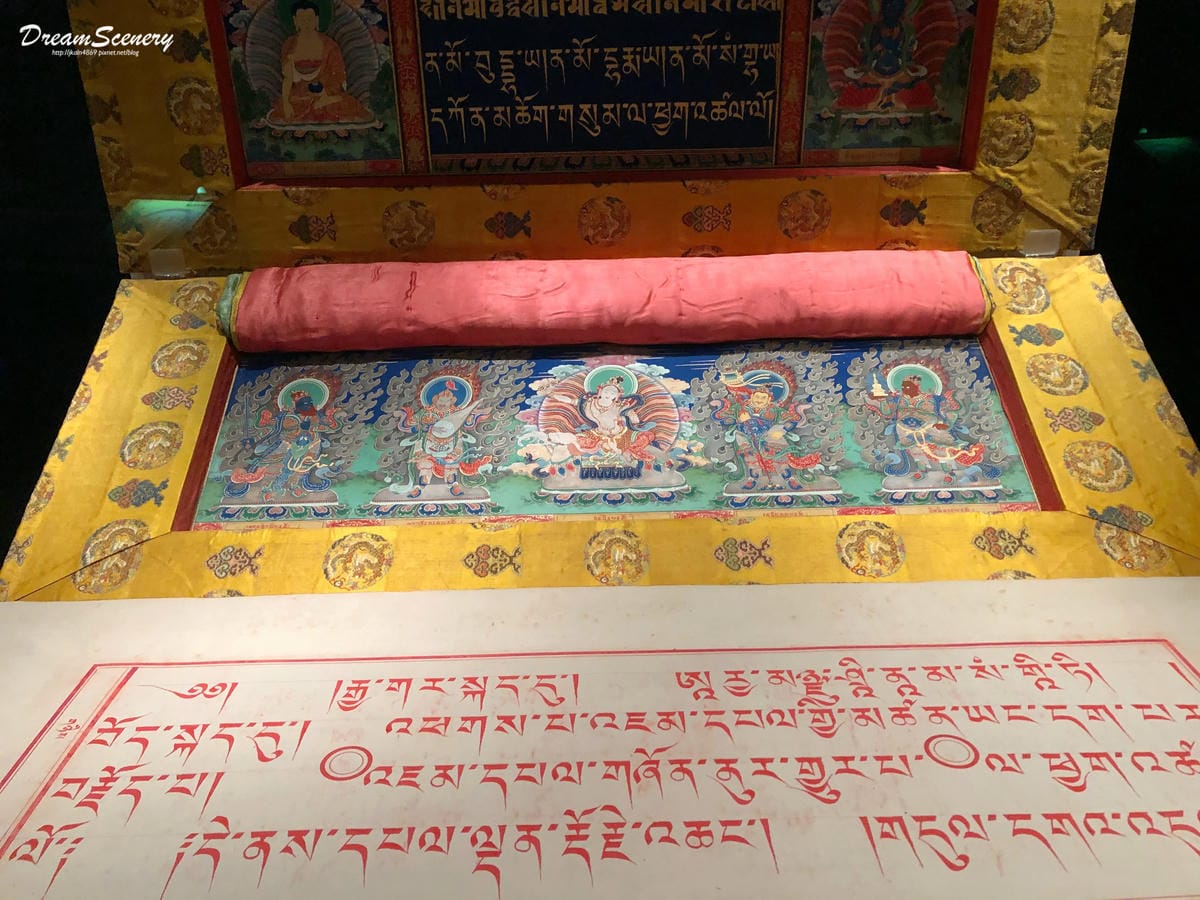 DreamScenery
http://jkoln4869.pixnet.net/blog
ན་མོ་བུདྡྷ་ཡ། ན་མོ་དྷརྨ་ཡ། ན་མོ་སཾ་གྷ་ཡ
དཀོན་མཆོག་གསུམ་ལ་ཕྱག་འཚལ་ལོ།
༄༅། །རྒྱ་གར་སྐད་དུ། ཨཱརྱ་མཉྫུ་ཤྲཱི་ནཱ་མ་སཾ་གཱི་ཏི།
བོད་སྐད་དུ། འཕགས་པ་འཇམ་དཔལ་གྱི་མཚན་ཡང་དག་པར
བརྗོད་པ། འཇམ་དཔལ་གཞོན་ནུར་གྱུར་པ་ལ་ཕྱག་འཚ
ལོ༔ ༔དེ་ནས་དཔལ་ལྡན་རྡོ་རྗེ་འཆང་། །གདུལ་དཀའ་འདུ